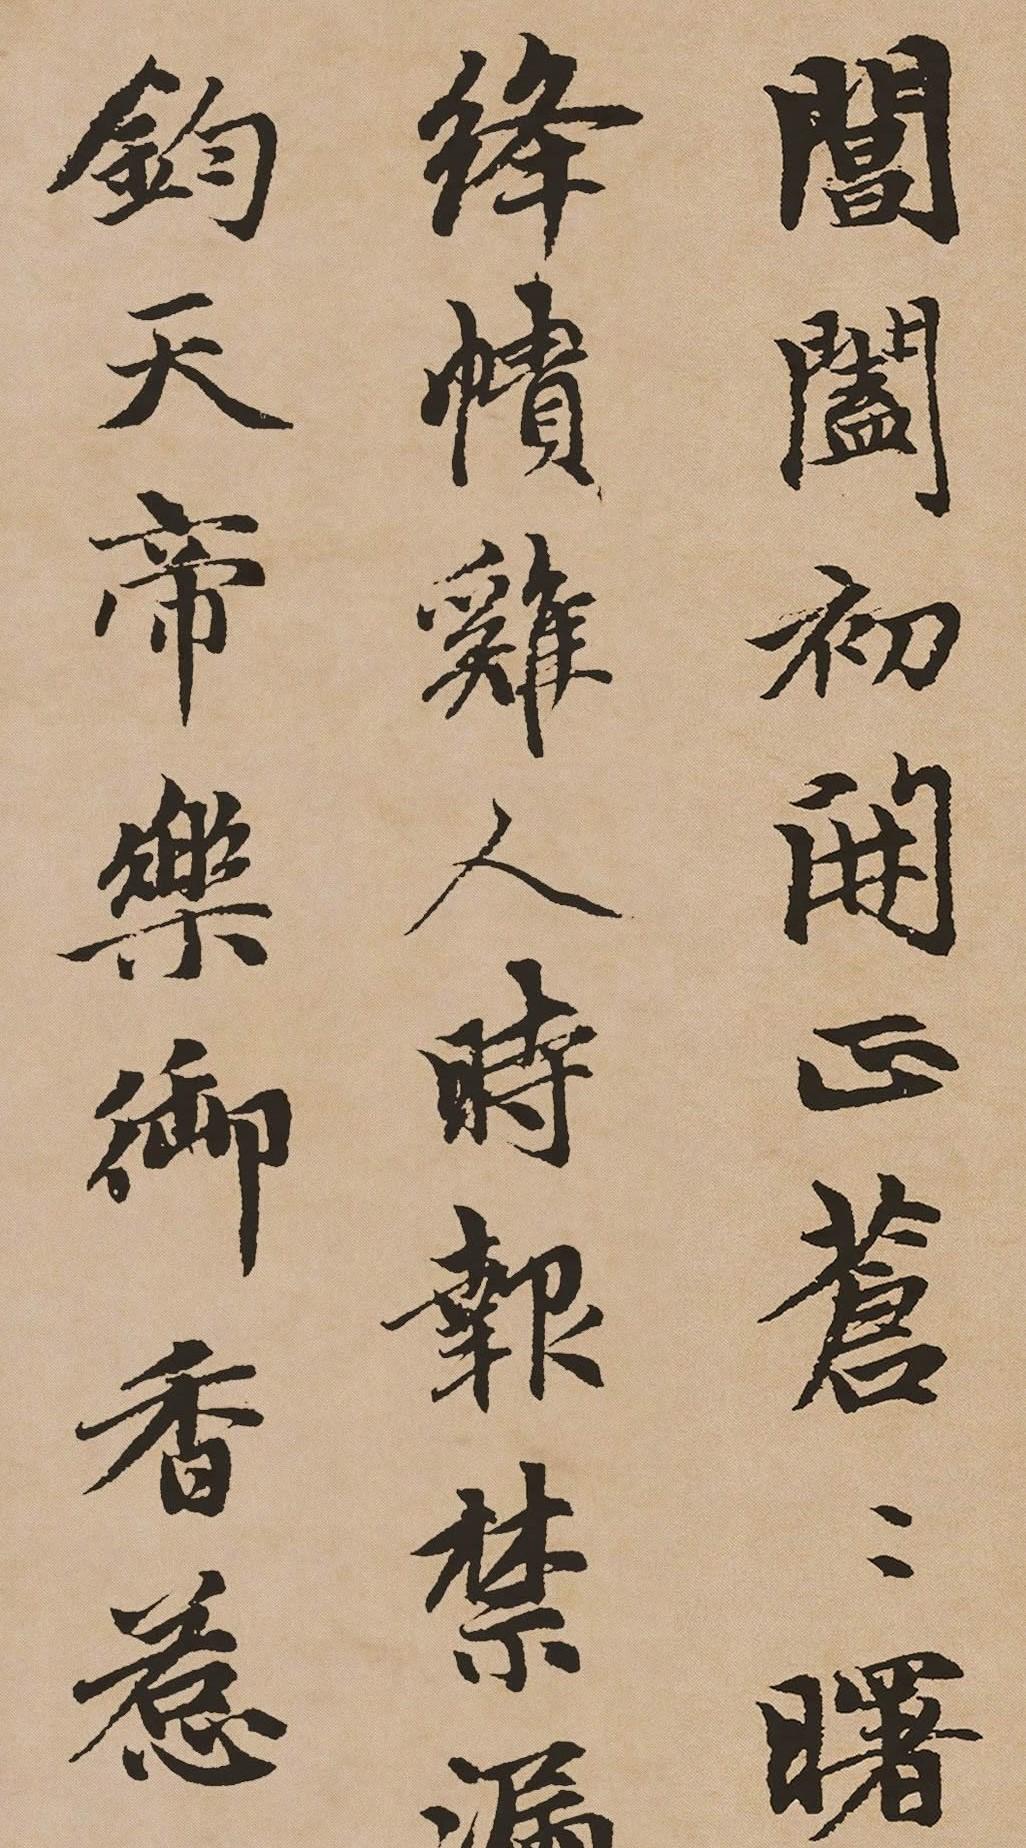 閶闔初開正蒼〻曙
絳幘雞人時報禁漏
鈞天帝樂御香惹